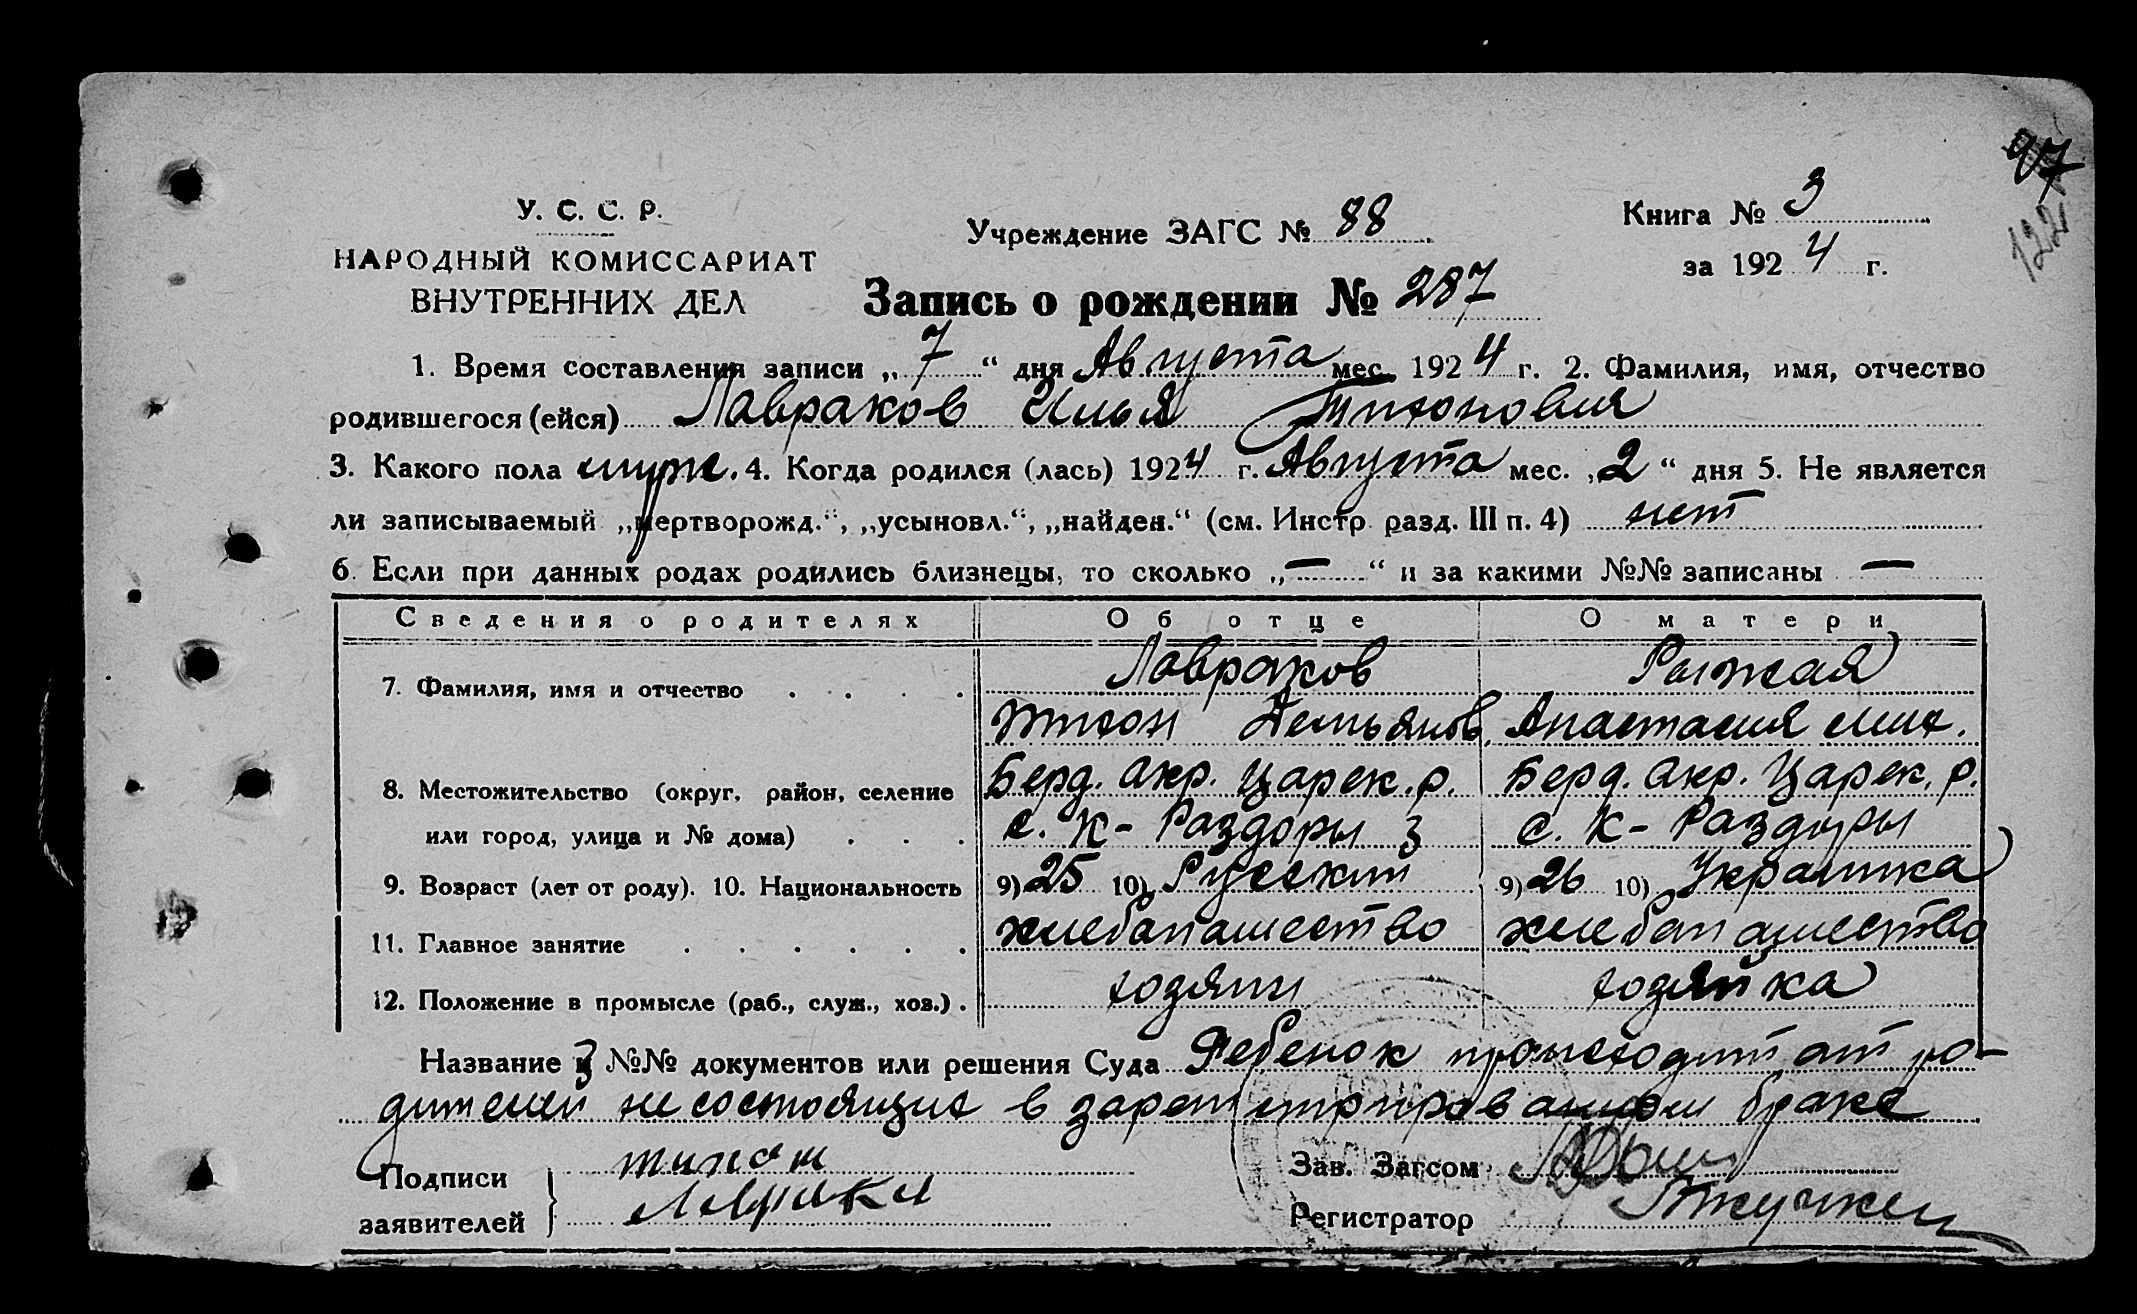 97
122
У. С. С. Р.
НАРОДНЫЙ КОМИССАРИАТ
ВНУТРЕННИХ ДЕЛ
Учреждение ЗАГС № 88
Книга № 3
за 1924 г.
Запись о рождении № 287
1. Время составления записи „ 7 “ дня Августа мес. 1924 г. 2. Фамилия, имя, отчество
родившегося (ейся) Лавраков Илья Тихонович
3. Какого пола муж. 4. Когда родился (лась) 1924 г. Августа мес. „2“ дня 5. Не является
ли записываемый „мертворожд.“, „усыновл.“, „найден.“ (см. Инстр. разд. III п. 4) нет
6. Если при данных родах родились близнецы, то сколько „—“ и за какими №№ записаны —
Сведения о родителях Об отце О матери
7. Фамилия, имя и отчество Лавраков Рыжая
Тихон Демьянов. Анастасия Мих.
8. Местожительство (округ, район, селение Берд. Окр. Царек. р. Берд. Окр. Царек. р.
или город, улица и № дома) с. К- Раздоры с. К- Раздоры
9. Возраст (лет от роду). 10. Национальность 9) 25 10) Русский 9) 26 10) Украинка
11. Главное занятие хлебапашество хлебапашество
12. Положение в промысле (раб., служ., хоз.) хозяин хозяйка
Название и №№ документов или решения Суда Ребенок происходит от ро-
дителей не состоящих в зарегистрированном браке
Подписи
заявителей
Зав. Загсом
Регистратор